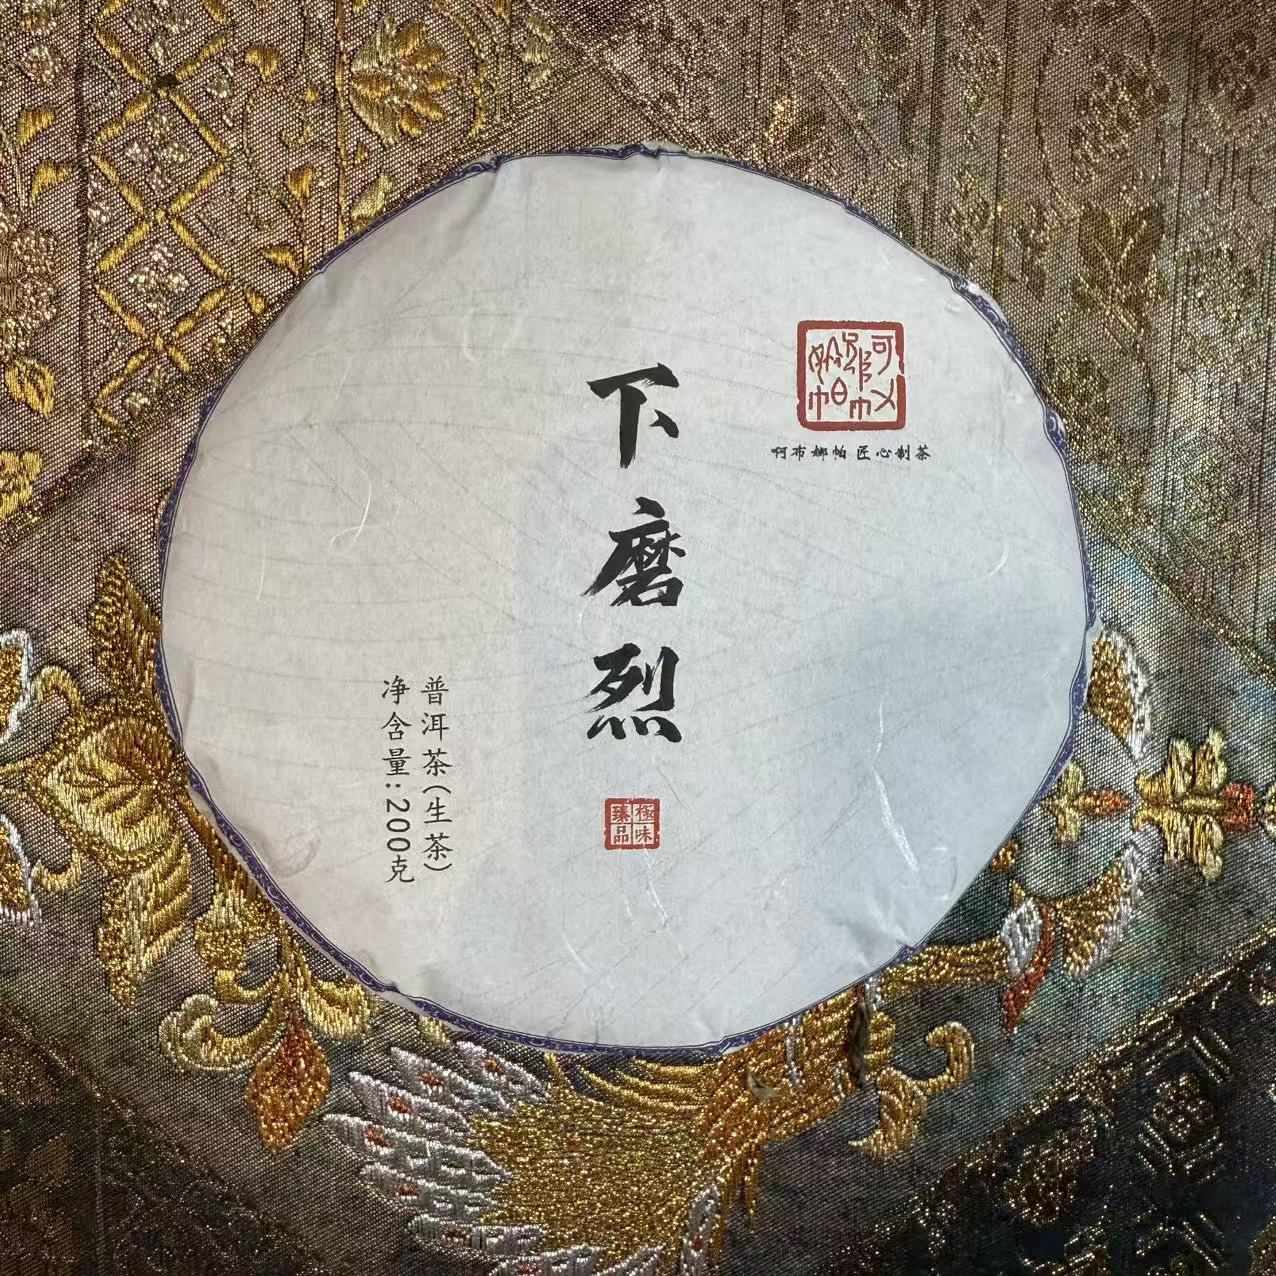 下磨烈
啊布娜帕 匠心制茶
普洱茶(生茶)
净含量:200克
極味
臻品